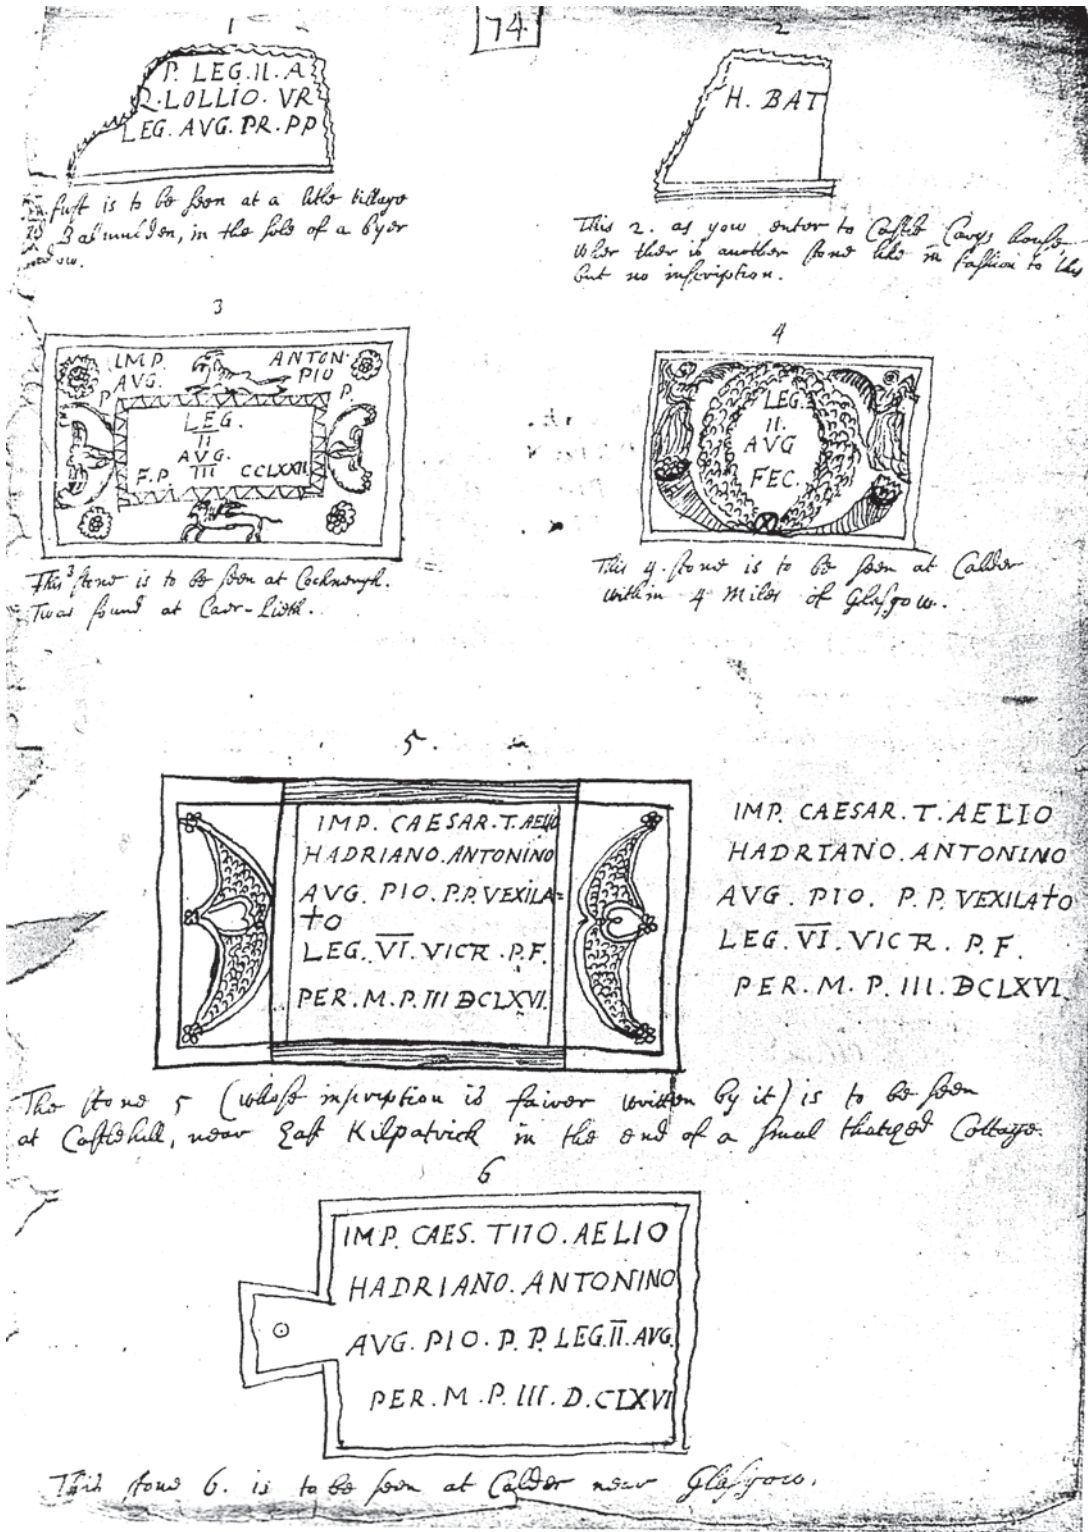 74
1
P. LEG. II. A
Q. LOLLIO. VR
LEG. AVG. PR. PP
first is to be seen at a litle village
Balmulden, in the sole of a byer
2
H. BAT
This 2. as you enter to Castle Carys house
wher ther is another stone like in fashion to this
but no inscription.
3
IMP. ANTON.
AVG. PIO
P. P.
LEG.
II
AVG.
F.P. III CCLXXII
This 3 stone is to be seen at Cochneugh.
Twas found at Caer-Lieth.
4
LEG.
II.
AVG
FEC.
This 4. stone is to be seen at Calder
within 4 Miles of Glasgow.
5.
IMP. CAESAR. T. AELIO
HADRIANO. ANTONINO
AVG. PIO. P.P. VEXILA=
TO
LEG. VI. VICTR. P.F.
PER. M. P. III DCLXVI.
IMP. CAESAR. T. AELIO
HADRIANO. ANTONINO
AVG. PIO. P. P. VEXILATO
LEG. VI. VICTR. P. F.
PER. M. P. III. DCLXVI.
The stone 5 (whose inscription is fairer written by it) is to be seen
at Castlehill, near East Kilpatrick in the end of a smal thatched Cottage.
6
IMP. CAES. TITO. AELIO
HADRIANO. ANTONINO
AVG. PIO. P. P. LEG. II. AVG.
PER. M. P. III. D. CLXVI
This stone 6. is to be seen at Calder near Glasgow.